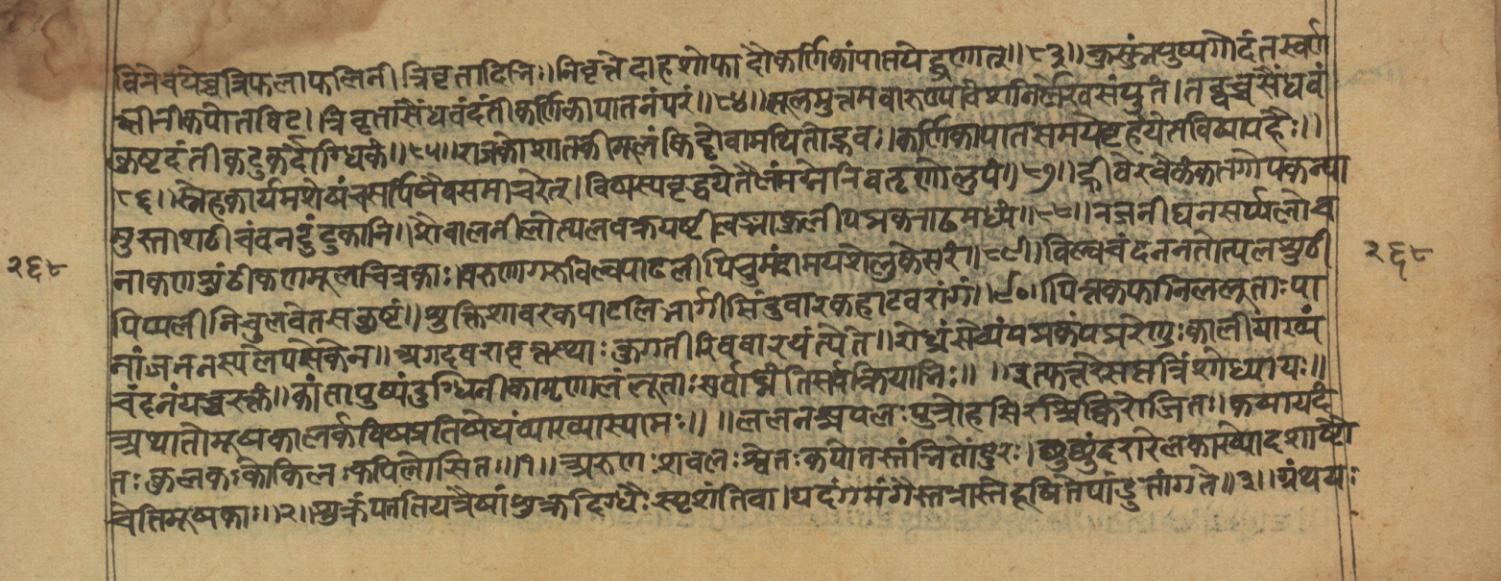 विनेवयेच्चत्रिफलाफलिनी त्रिवृतादिनि॥ निवृत्ते दाहशोफादौ कर्णिकां पातयेद्व्रणात्॥८३॥ कुसुंभपुष्पगोदंतस्वर्ण
क्षीनीकपोतविट्। त्रिवृतासैंधवंदंती कर्णिकापातनंपरं॥८४॥ मूलमुत्तमवारुण्या वंशनिर्लेखसंयुतं। तद्वच्चसैंधवं
कुष्टदंतीकटुकदौग्धिकं॥८५॥ राजकोशातकीमूलं किट्टोवामथितोद्भवः। कर्णिकापातसमयेबृंहयेतविषापहैः॥
८६॥ स्नेहकार्यमशेषंचसर्पिषैवसमाचरेत्। विषस्यवृद्धयेतैलंमग्नेनिवतृणोलुपं॥८७॥ ह्रीवेरवैकंकतगोपकन्या
मुस्ताशठीचंदनटुंटुकानि॥ शैवालनीलोत्पलवक्रयष्टीत्वङ्नाकुलीपद्मकनाढमध्यं॥८८॥ रजनीघनसर्प्पलोच
२६८ नाकणशुंठीकणमूलचित्रकाः। वरुणगरुबिल्वपाटलीपिचुमंदामयशेलुकेसरं॥८९॥ बिल्वचंदननतोत्पलशुंठी २६८
पिप्पलीनिचुलवेतसकुष्टं॥ शुक्तिशावरकपाटलिभार्गीसिंदुवारकहाटवरांगं॥९०॥ पित्तकफानिललूताः पा
नांजननस्यलेपसेकेन॥ अगदवरावृत्तस्थाः कुगतीरिववारयंत्येते॥ रोध्रंसेव्यंपद्मकंपद्मरेणुः कालीयाख्यं
चंदनंयच्चरक्तं॥ कांतापुष्पंदुग्धिनीकामृणालं लूताः सर्वाघ्नंतिसर्वक्रियानिः॥ ॥ इत्युत्तरेसप्तत्रिंशोध्यायः॥
अथातोमूषकालर्कविषप्रतिषेधंव्याख्यास्यामः॥ ॥ लालनश्चपलः पुत्रोहसिरश्चिक्किरोजितः॥ कषायदं
तः कुलकः कोकिलः कपिलोसितः॥१॥ अरुणः शवलः श्वेतः कपोतस्तंनितोंदुरः। छुछुंदरारेलकाख्योदशाष्टौ
चेतिमूषकाः॥२॥ शुक्रंपततियत्रैषांशुक्रदिग्धैः स्पृशंतिवा। यदंगमंगैस्तत्रास्रेदूषितेपांडुतांगते॥३॥ ग्रंथयः